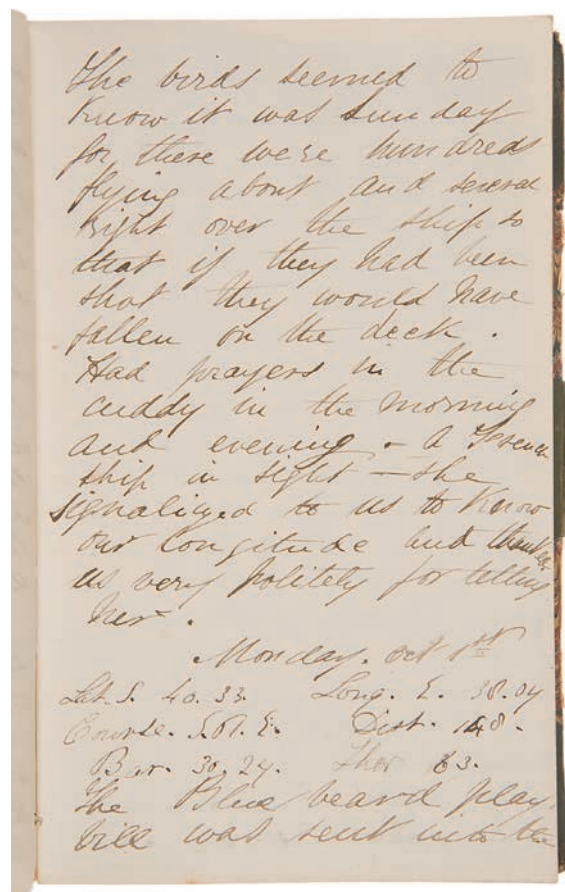 The birds seemed to
know it was Sunday
for there were hundreds
flying about and several
right over the ship so
that if they had been
shot they would have
fallen on the deck.
Had prayers in the
cuddy in the morning
and evening - a French
ship in sight - she
signalized to us to know
our longitude and thanked
us very politely for telling
her.
Monday. Oct 1st
Lat. S. 40. 33. Long. E. 38. 04
Course. E. Dist. 148.
Bar. 30. 24. Ther 63.
The Blue beard play
bill was sent into the